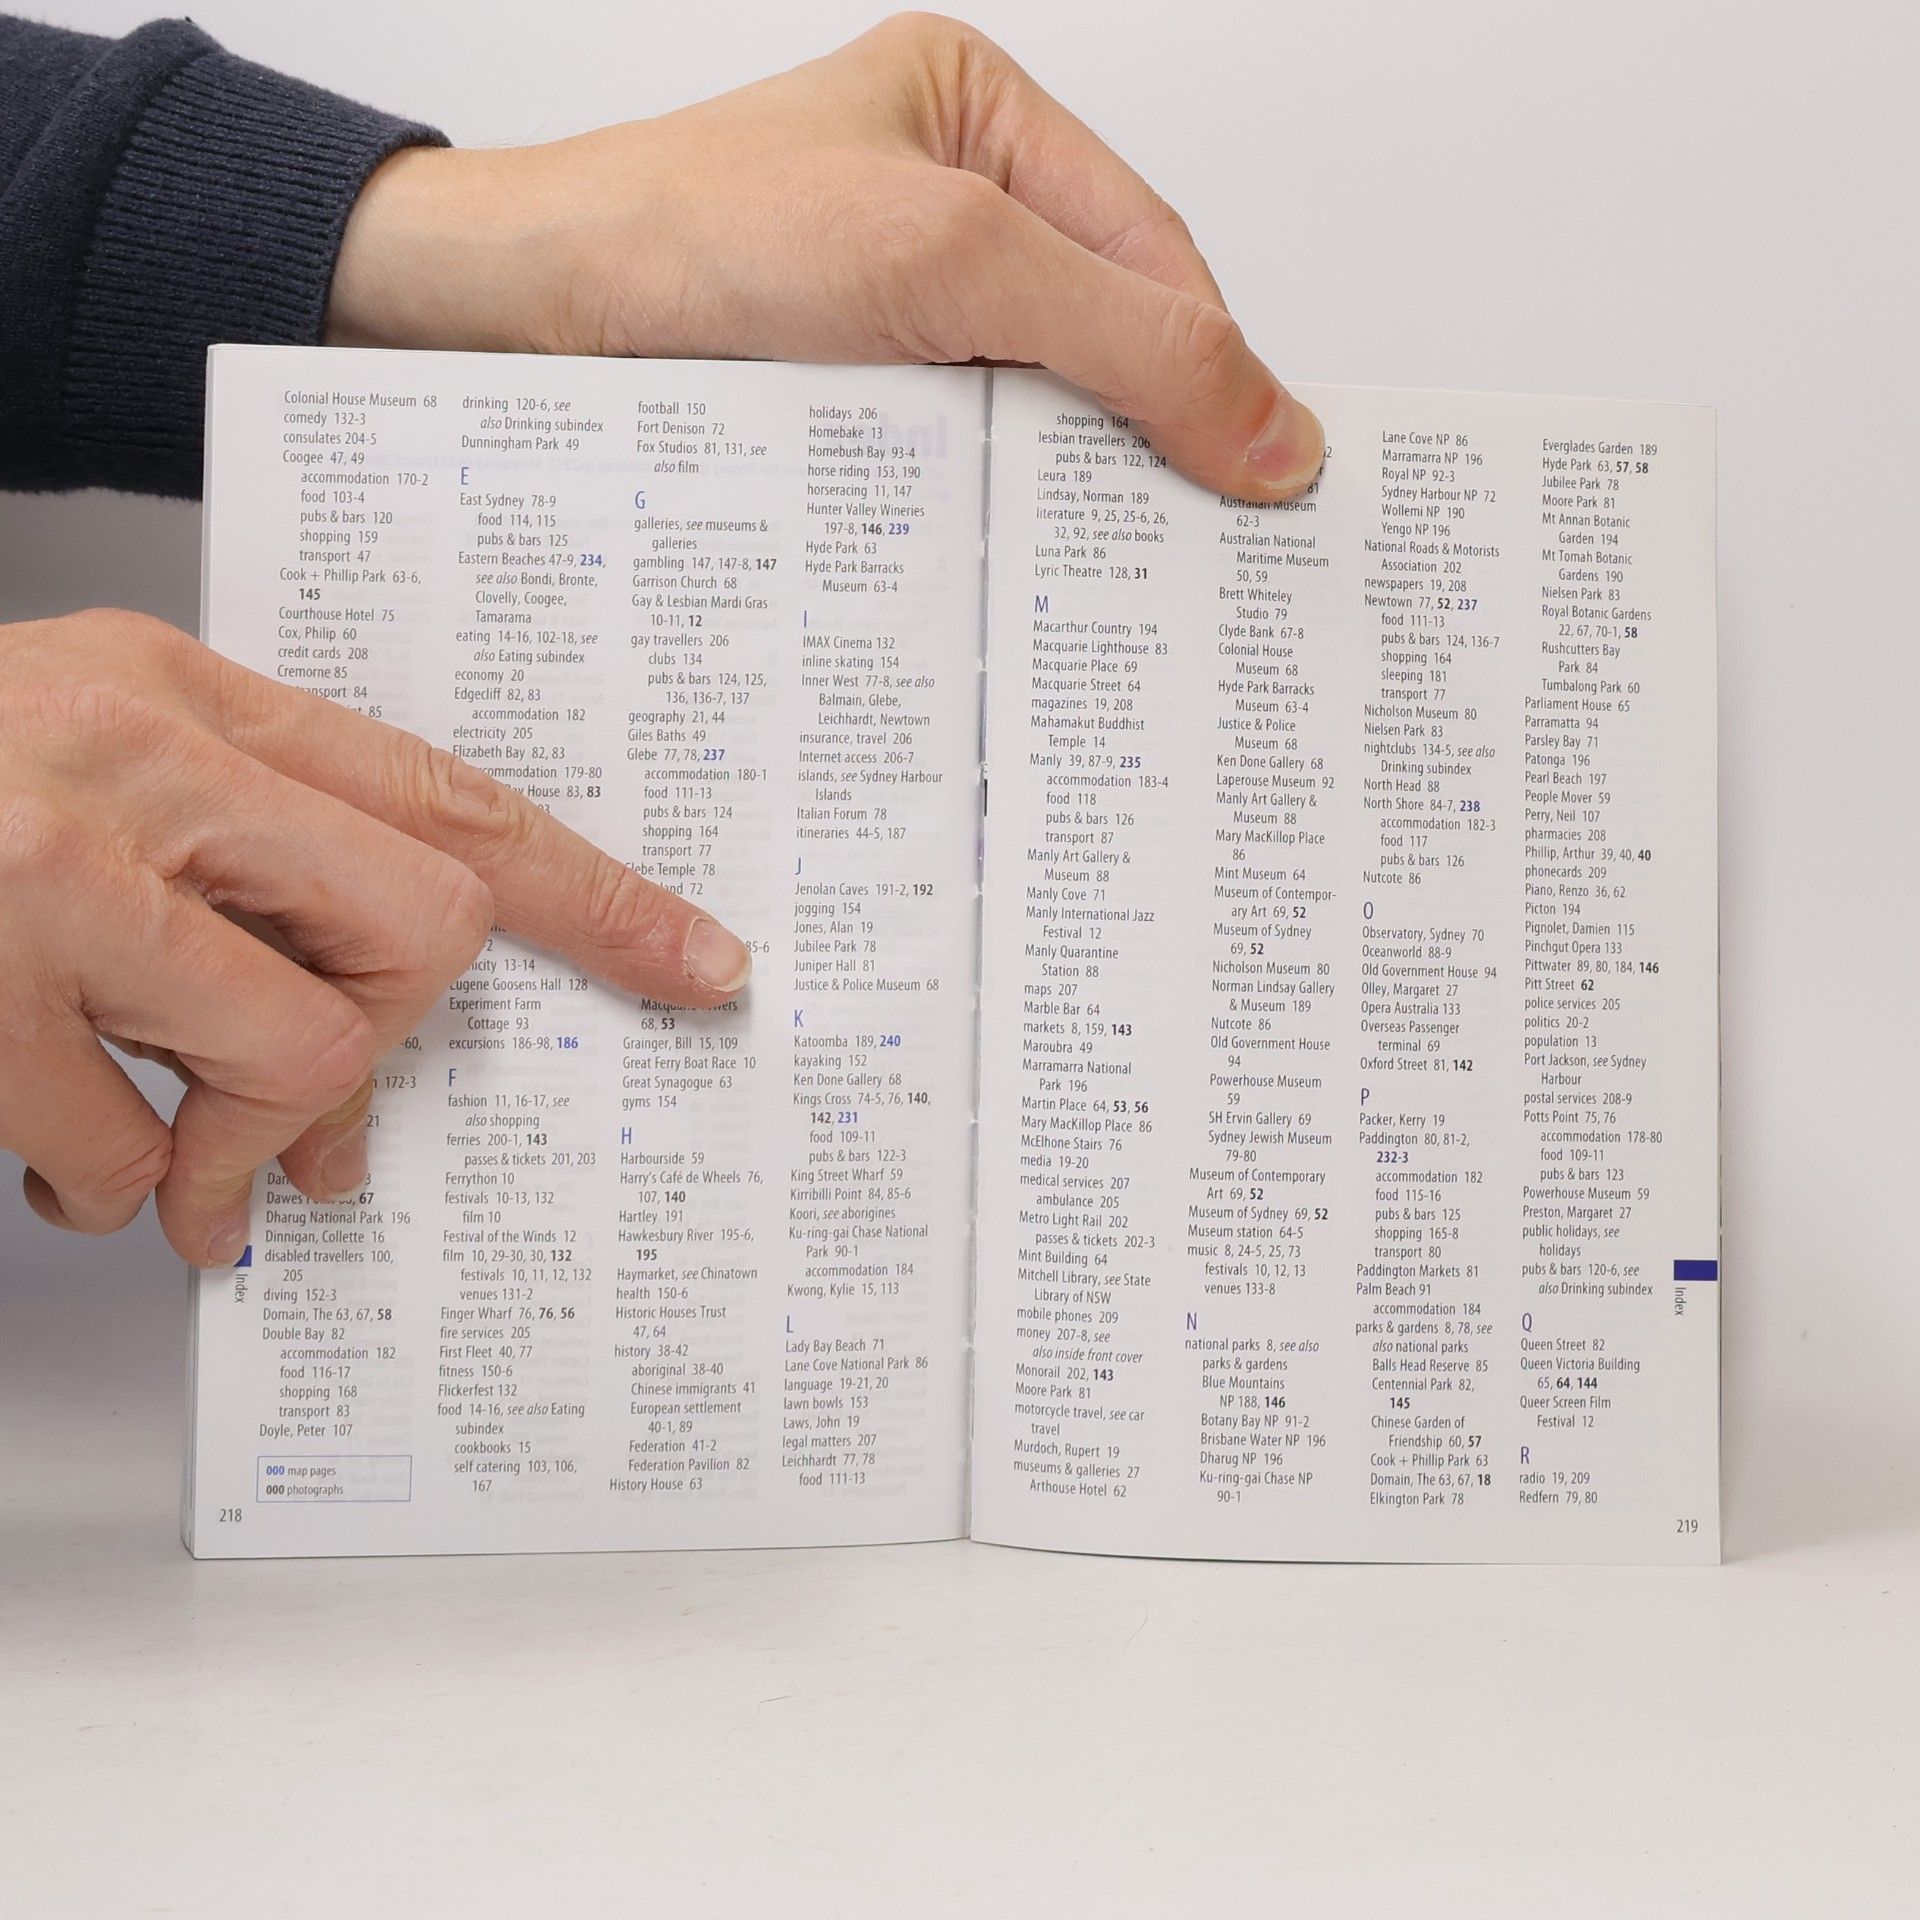 Colonial House Museum 68
comedy 132-3
consulates 204-5
Coogee 47, 49
accommodation 170-2
food 103-4
pubs & bars 120
shopping 159
transport 47
Cook + Phillip Park 63-6,
145
Courthouse Hotel 75
Cox, Philip 60
credit cards 208
Cremorne 85
transport 84
85
-60,
172-3
21
Dawes 67
Dharug National Park 196
Dinnigan, Collette 16
disabled travellers 100,
205
diving 152-3
Domain, The 63, 67, 58
Double Bay 82
accommodation 182
food 116-17
shopping 168
transport 83
Doyle, Peter 107
000 map pages
000 photographs
218
Index
drinking 120-6, see
also Drinking subindex
Dunningham Park 49
E
East Sydney 78-9
food 114, 115
pubs & bars 125
Eastern Beaches 47-9, 234,
see also Bondi, Bronte,
Clovelly, Coogee,
Tamarama
eating 14-16, 102-18, see
also Eating subindex
economy 20
Edgecliff 82, 83
accommodation 182
electricity 205
Elizabeth Bay 82, 83
accommodation 179-80
House 83, 83
13-14
Eugene Goosens Hall 128
Experiment Farm
Cottage 93
excursions 186-98, 186
F
fashion 11, 16-17, see
also shopping
ferries 200-1, 143
passes & tickets 201, 203
Ferrython 10
festivals 10-13, 132
film 10
Festival of the Winds 12
film 10, 29-30, 30, 132
festivals 10, 11, 12, 132
venues 131-2
Finger Wharf 76, 76, 56
fire services 205
First Fleet 40, 77
fitness 150-6
Flickerfest 132
food 14-16, see also Eating
subindex
cookbooks 15
self catering 103, 106,
167
football 150
Fort Denison 72
Fox Studios 81, 131, see
also film
G
galleries, see museums &
galleries
gambling 147, 147-8, 147
Garrison Church 68
Gay & Lesbian Mardi Gras
10-11, 12
gay travellers 206
clubs 134
pubs & bars 124, 125,
136, 136-7, 137
geography 21, 44
Giles Baths 49
Glebe 77, 78, 237
accommodation 180-1
food 111-13
pubs & bars 124
shopping 164
transport 77
Glebe Temple 78
72
85-6
Macquarie
68, 53
Grainger, Bill 15, 109
Great Ferry Boat Race 10
Great Synagogue 63
gyms 154
H
Harbourside 59
Harry's Café de Wheels 76,
107, 140
Hartley 191
Hawkesbury River 195-6,
195
Haymarket, see Chinatown
health 150-6
Historic Houses Trust
47, 64
history 38-42
aboriginal 38-40
Chinese immigrants 41
European settlement
40-1, 89
Federation 41-2
Federation Pavilion 82
History House 63
holidays 206
Homebake 13
Homebush Bay 93-4
horse riding 153, 190
horseracing 11, 147
Hunter Valley Wineries
197-8, 146, 239
Hyde Park 63
Hyde Park Barracks
Museum 63-4
I
IMAX Cinema 132
inline skating 154
Inner West 77-8, see also
Balmain, Glebe,
Leichhardt, Newtown
insurance, travel 206
Internet access 206-7
islands, see Sydney Harbour
Islands
Italian Forum 78
itineraries 44-5, 187
J
Jenolan Caves 191-2, 192
jogging 154
Jones, Alan 19
Jubilee Park 78
Juniper Hall 81
Justice & Police Museum 68
K
Katoomba 189, 240
kayaking 152
Ken Done Gallery 68
Kings Cross 74-5, 76, 140,
142, 231
food 109-11
pubs & bars 122-3
King Street Wharf 59
Kirribilli Point 84, 85-6
Koori, see aborigines
Ku-ring-gai Chase National
Park 90-1
accommodation 184
Kwong, Kylie 15, 113
L
Lady Bay Beach 71
Lane Cove National Park 86
language 19-21, 20
lawn bowls 153
Laws, John 19
legal matters 207
Leichhardt 77, 78
food 111-13
shopping 164
lesbian travellers 206
pubs & bars 122, 124
Leura 189
Lindsay, Norman 189
literature 9, 25, 25-6, 26,
32, 92, see also books
Luna Park 86
Lyric Theatre 128, 31
M
Macarthur Country 194
Macquarie Lighthouse 83
Macquarie Place 69
Macquarie Street 64
magazines 19, 208
Mahamakut Buddhist
Temple 14
Manly 39, 87-9, 235
accommodation 183-4
food 118
pubs & bars 126
transport 87
Manly Art Gallery &
Museum 88
Manly Cove 71
Manly International Jazz
Festival 12
Manly Quarantine
Station 88
maps 207
Marble Bar 64
markets 8, 159, 143
Maroubra 49
Marramarra National
Park 196
Martin Place 64, 53, 56
Mary MacKillop Place 86
McElhone Stairs 76
media 19-20
medical services 207
ambulance 205
Metro Light Rail 202
passes & tickets 202-3
Mint Building 64
Mitchell Library, see State
Library of NSW
mobile phones 209
money 207-8, see
also inside front cover
Monorail 202, 143
Moore Park 81
motorcycle travel, see car
travel
Murdoch, Rupert 19
museums & galleries 27
Arthouse Hotel 62
81
Australian Museum
62-3
Australian National
Maritime Museum
50, 59
Brett Whiteley
Studio 79
Clyde Bank 67-8
Colonial House
Museum 68
Hyde Park Barracks
Museum 63-4
Justice & Police
Museum 68
Ken Done Gallery 68
Laperouse Museum 92
Manly Art Gallery &
Museum 88
Mary MacKillop Place
86
Mint Museum 64
Museum of Contempor-
ary Art 69, 52
Museum of Sydney
69, 52
Nicholson Museum 80
Norman Lindsay Gallery
& Museum 189
Nutcote 86
Old Government House
94
Powerhouse Museum
59
SH Ervin Gallery 69
Sydney Jewish Museum
79-80
Museum of Contemporary
Art 69, 52
Museum of Sydney 69, 52
Museum station 64-5
music 8, 24-5, 25, 73
festivals 10, 12, 13
venues 133-8
N
national parks 8, see also
parks & gardens
Blue Mountains
NP 188, 146
Botany Bay NP 91-2
Brisbane Water NP 196
Dharug NP 196
Ku-ring-gai Chase NP
90-1
Lane Cove NP 86
Marramarra NP 196
Royal NP 92-3
Sydney Harbour NP 72
Wollemi NP 190
Yengo NP 196
National Roads & Motorists
Association 202
newspapers 19, 208
Newtown 77, 52, 237
food 111-13
pubs & bars 124, 136-7
shopping 164
sleeping 181
transport 77
Nicholson Museum 80
Nielsen Park 83
nightclubs 134-5, see also
Drinking subindex
North Head 88
North Shore 84-7, 238
accommodation 182-3
food 117
pubs & bars 126
Nutcote 86
O
Observatory, Sydney 70
Oceanworld 88-9
Old Government House 94
Olley, Margaret 27
Opera Australia 133
Overseas Passenger
terminal 69
Oxford Street 81, 142
P
Packer, Kerry 19
Paddington 80, 81-2,
232-3
accommodation 182
food 115-16
pubs & bars 125
shopping 165-8
transport 80
Paddington Markets 81
Palm Beach 91
accommodation 184
parks & gardens 8, 78, see
also national parks
Balls Head Reserve 85
Centennial Park 82,
145
Chinese Garden of
Friendship 60, 57
Cook + Phillip Park 63
Domain, The 63, 67, 18
Elkington Park 78
Everglades Garden 189
Hyde Park 63, 57, 58
Jubilee Park 78
Moore Park 81
Mt Annan Botanic
Garden 194
Mt Tomah Botanic
Gardens 190
Nielsen Park 83
Royal Botanic Gardens
22, 67, 70-1, 58
Rushcutters Bay
Park 84
Tumbalong Park 60
Parliament House 65
Parramatta 94
Parsley Bay 71
Patonga 196
Pearl Beach 197
People Mover 59
Perry, Neil 107
pharmacies 208
Phillip, Arthur 39, 40, 40
phonecards 209
Piano, Renzo 36, 62
Picton 194
Pignolet, Damien 115
Pinchgut Opera 133
Pittwater 89, 80, 184, 146
Pitt Street 62
police services 205
politics 20-2
population 13
Port Jackson, see Sydney
Harbour
postal services 208-9
Potts Point 75, 76
accommodation 178-80
food 109-11
pubs & bars 123
Powerhouse Museum 59
Preston, Margaret 27
public holidays, see
holidays
pubs & bars 120-6, see
also Drinking subindex
Q
Queen Street 82
Queen Victoria Building
65, 64, 144
Queer Screen Film
Festival 12
R
radio 19, 209
Redfern 79, 80
Index
219